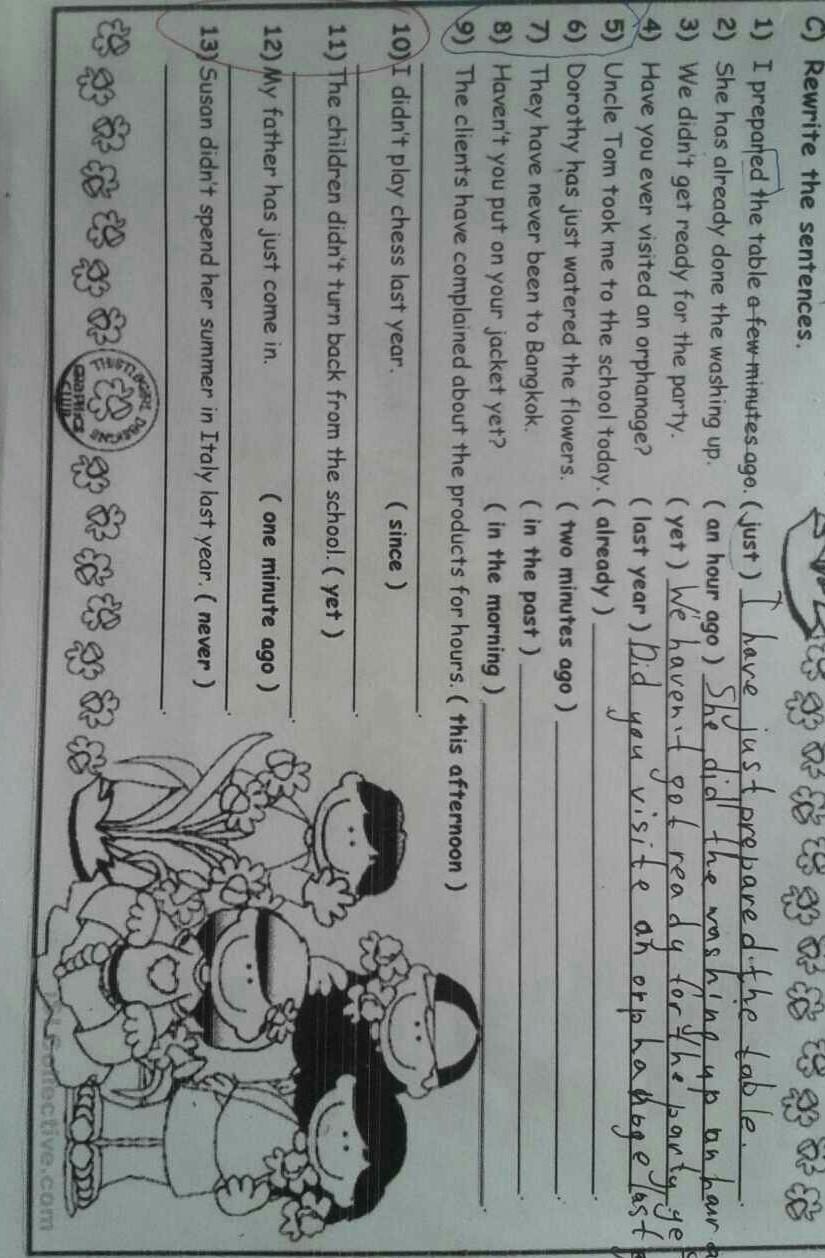 C) Rewrite the sentences.
1) I prepared the table a few minutes ago. ( just ) I have just prepared the table.
2) She has already done the washing up. ( an hour ago ) She did the washing up an hour
3) We didn't get ready for the party. ( yet ) We haven't got ready for the party ye
4) Have you ever visited an orphanage? ( last year ) Did you visite an orphanage last
5) Uncle Tom took me to the school today. ( already )
6) Dorothy has just watered the flowers. ( two minutes ago )
7) They have never been to Bangkok. ( in the past )
8) Haven't you put on your jacket yet? ( in the morning )
9) The clients have complained about the products for hours. ( this afternoon )
10) I didn't play chess last year. ( since )
11) The children didn't turn back from the school. ( yet )
12) My father has just come in. ( one minute ago )
13) Susan didn't spend her summer in Italy last year. ( never )
THISTLEGIRL DESIGNS
GRAPHICS
CLUB